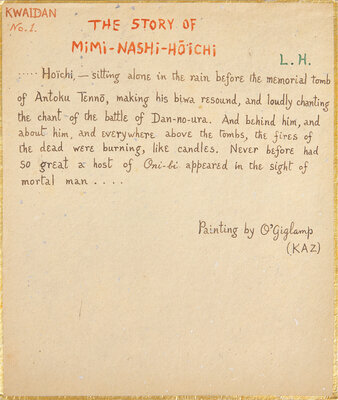 KWAIDAN
No. 1.
THE STORY OF
MIMI-NASHI-HŌÏCHI
L. H.
..... Hoïchi, — sitting alone in the rain before the memorial tomb
of Antoku Tennō, making his biwa resound, and loudly chanting
the chant of the battle of Dan-no-ura. And behind him, and
about him, and everywhere above the tombs, the fires of
the dead were burning, like candles. Never before had
so great a host of Oni-bi appeared in the sight of
mortal man ....
Painting by O'Giglamp
(KAZ)